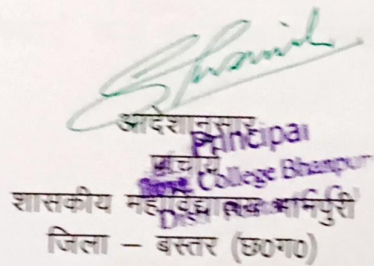 आदेशानुसार
Principal
प्राचार्य
Govt. College Bhanpuri
शासकीय महाविद्यालय भानपुरी
जिला – बस्तर (छ०ग०)